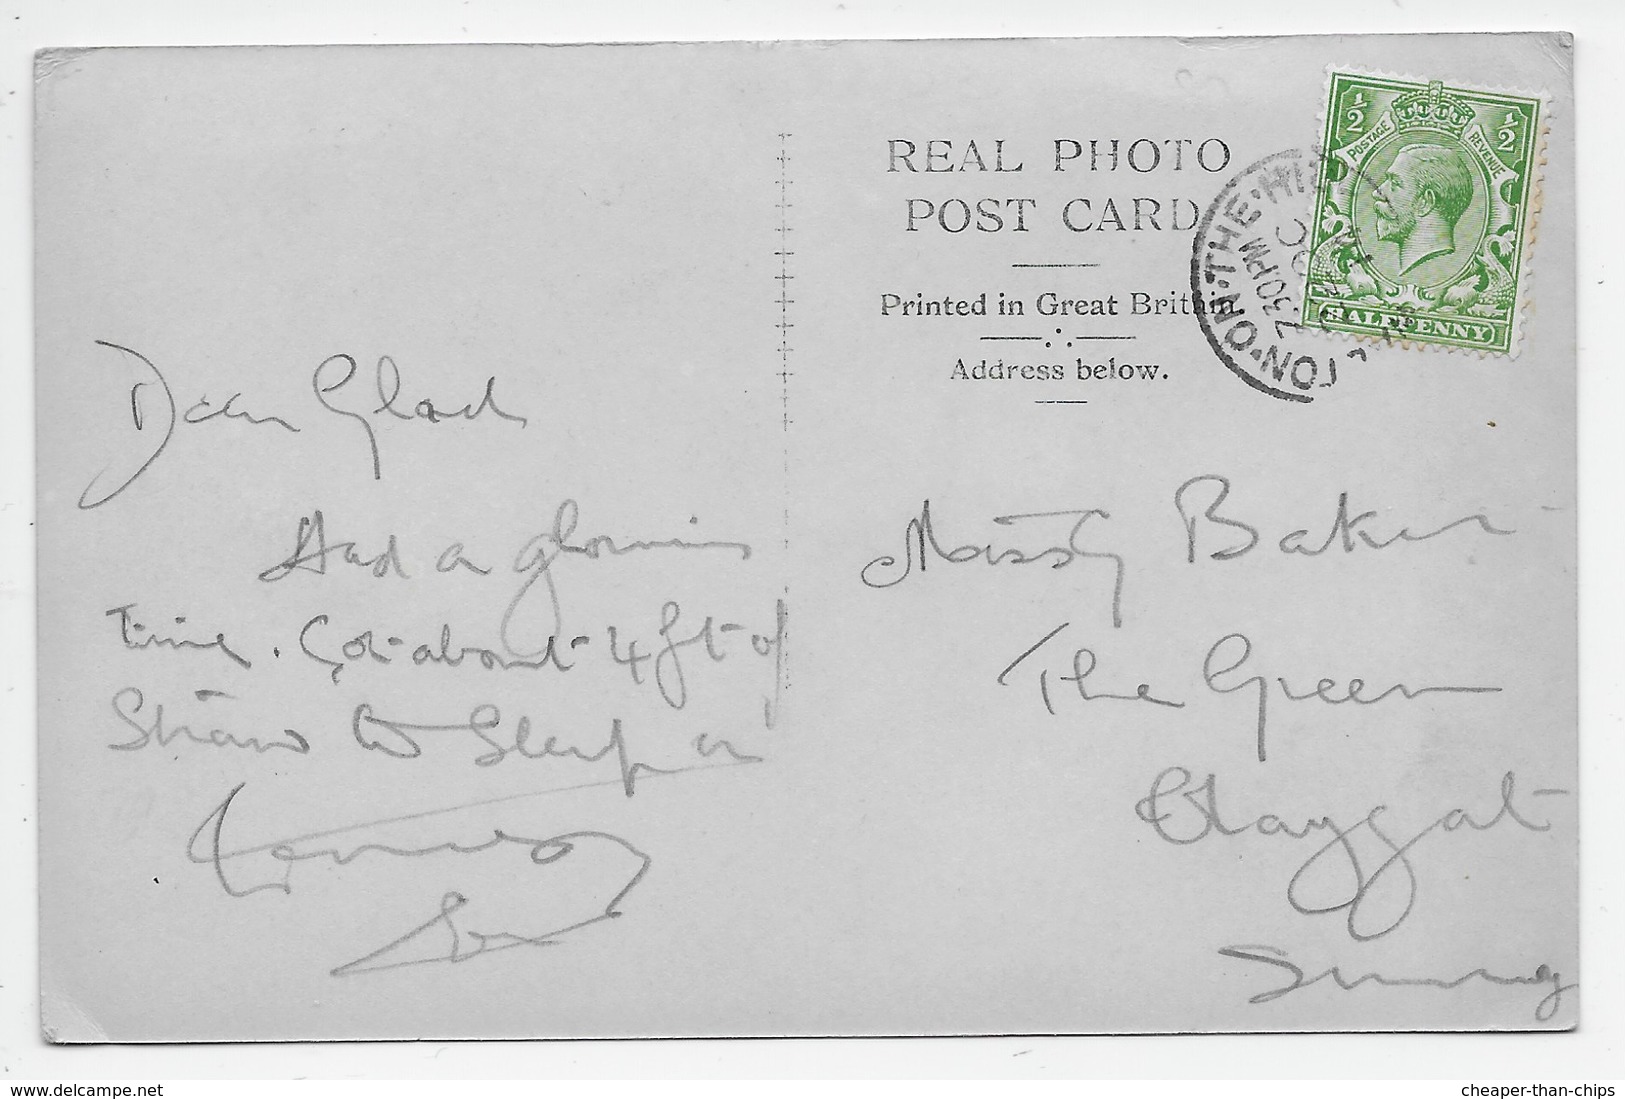 REAL PHOTO
POST CARD
Printed in Great Britain
Address below.
½ ½
POSTAGE REVENUE
HALFPENNY
TON·ON·THE·HILL
7.30PM
Dear Glad
Had a glorious
Time. Got about 4 ft of
Straw to Sleep on
Miss G Baker
The Green
Claygate
Surrey
delcampe.net
cheaper-than-chips